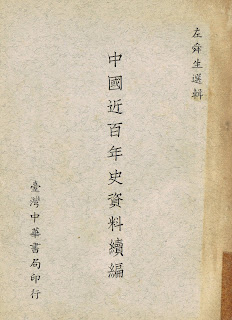 左舜生選輯
中國近百年史資料續編
臺灣中華書局印行